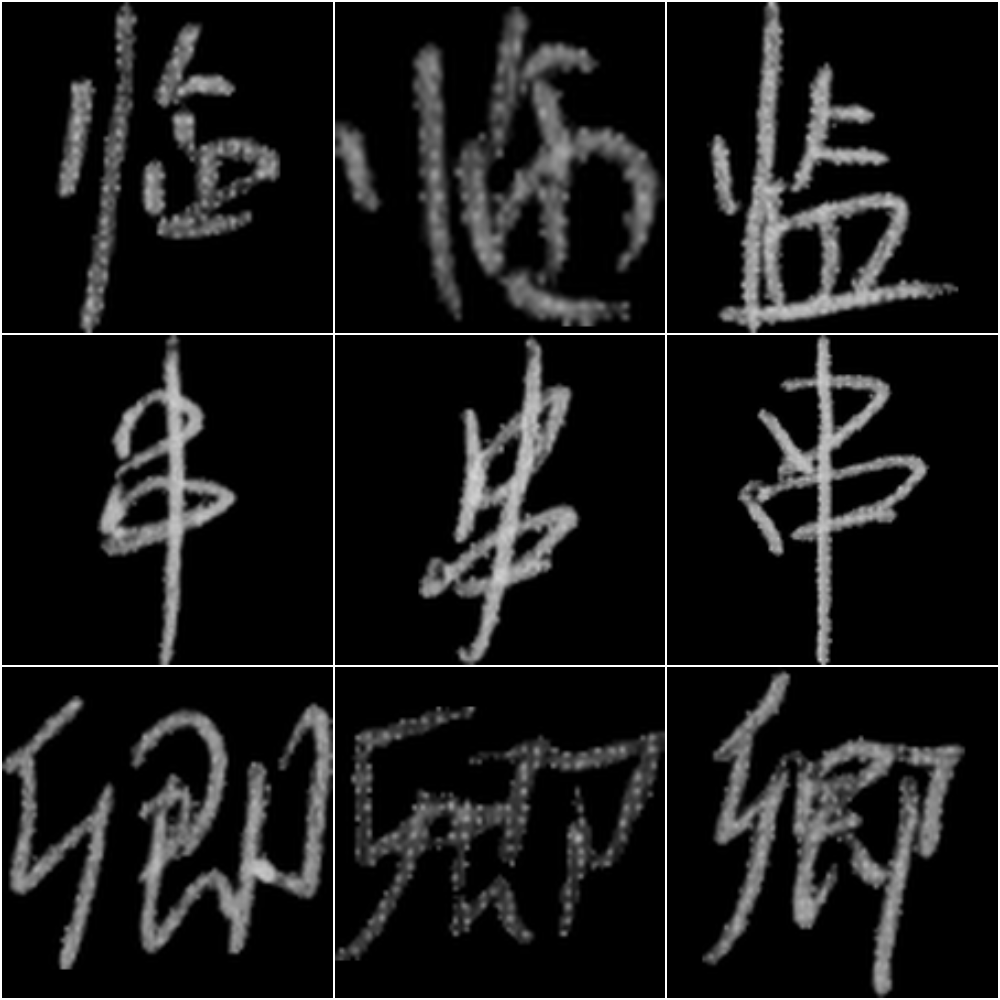 临临监
串串串
卿卿卿